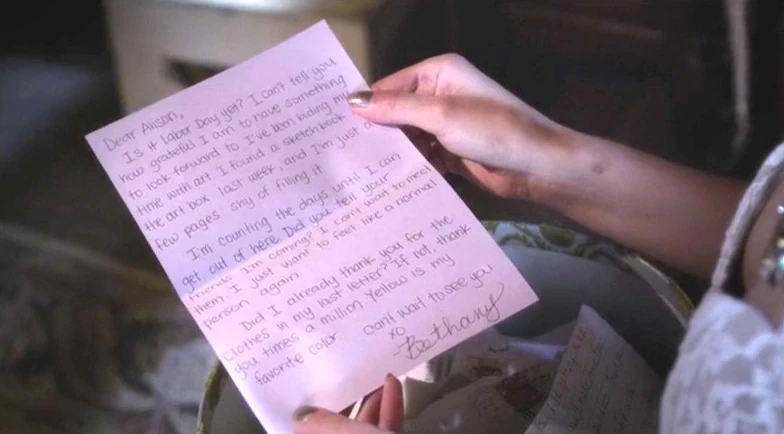 Dear Alison,
Is it Labor Day yet? I can't tell you
how grateful I am to have something
to look forward to I've been biding my
time with art I found a sketchbook
the art box last week, and I'm just a
few pages shy of filling it
I'm counting the days until I can
get out of here. Did you tell your
friends I'm coming? I can't wait to meet
them I just want to feel like a normal
person again.
Did I already thank you for the
clothes in my last letter? If not, thank
you times a million Yellow is my
favorite color
can't wait to see you
xo
-Bethany